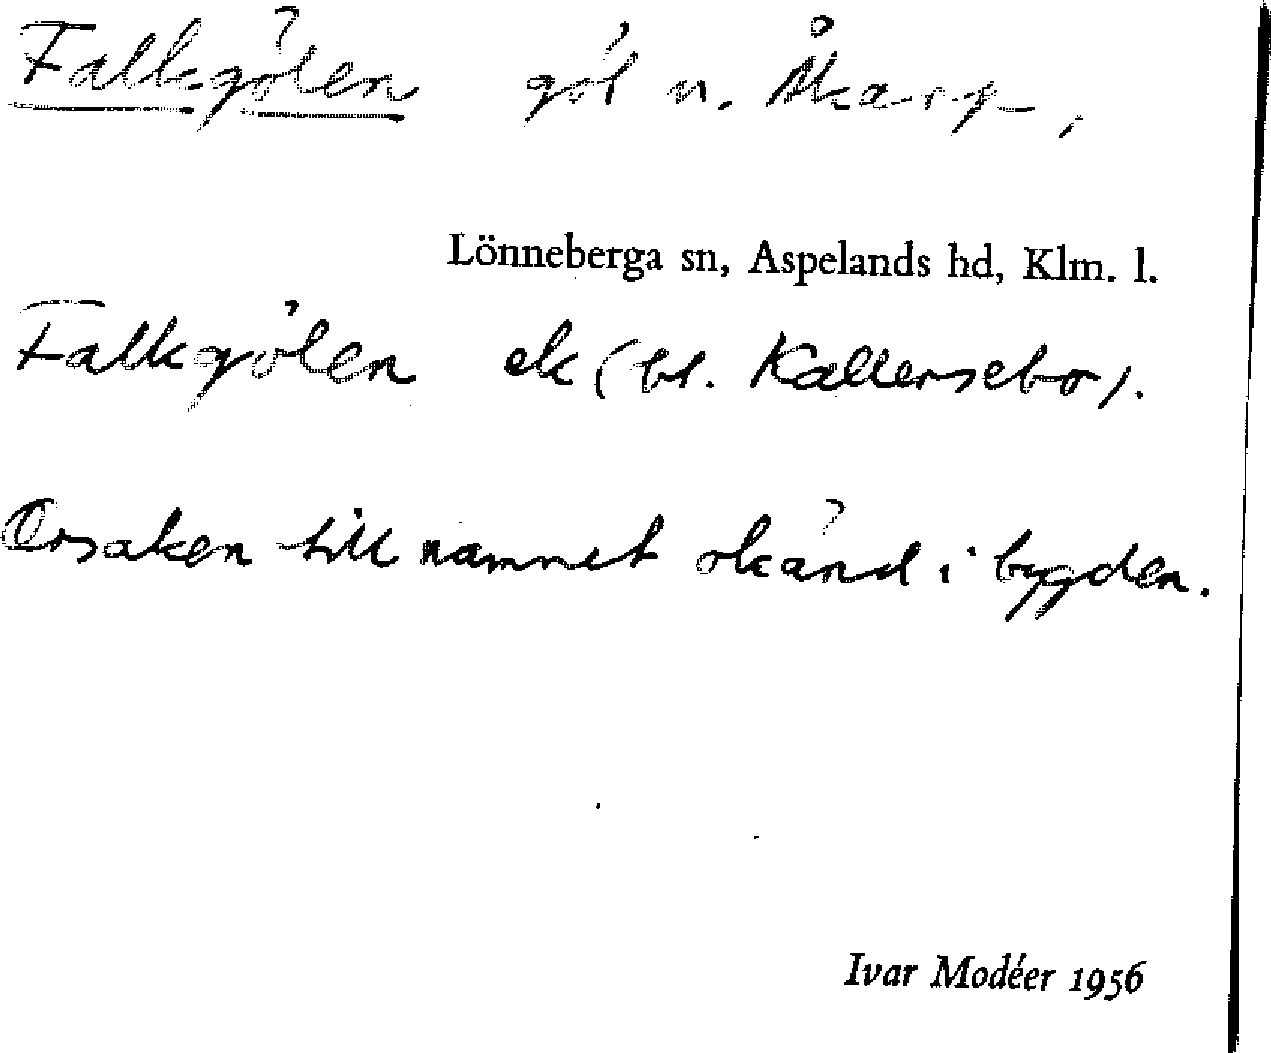 Falkgölen göl n. Åkarp,
Lönneberga sn, Aspelands hd, Klm. l.
Falkgölen ek (bl. Kallersebo).
Orsaken till namnet okänd i bygden.
Ivar Modéer 1956